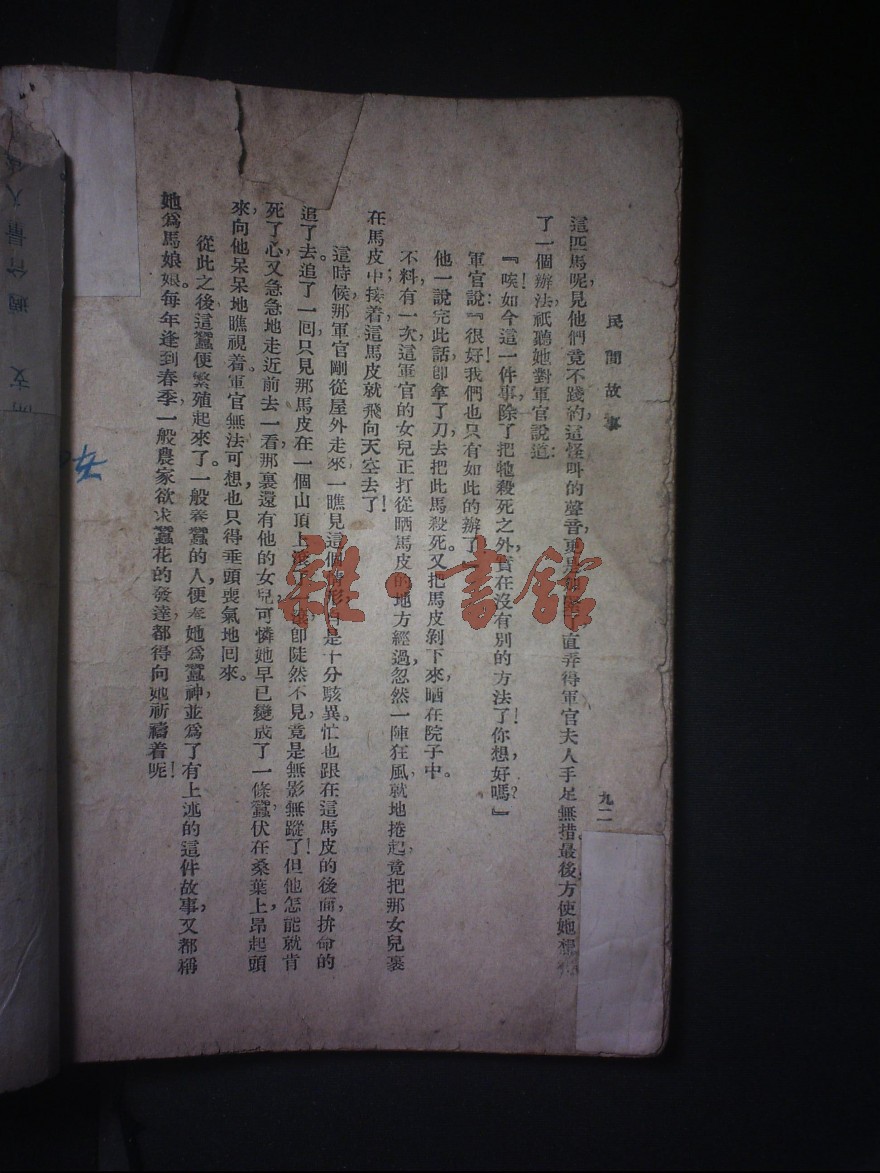 民間故事
九二
這匹馬呢，見他們竟不踐約，這怪叫的聲音，更是 直弄得軍官夫人手足無措。最後，方使她想
了一個辦法，祇聽她對軍官說道：
『唉！如今這一件事，除了把牠殺死之外，實在沒有別的方法了！你想，好嗎？』
軍官說：『很好！我們也只有如此的辦了
他一說完此話，即拿了刀去，把此馬殺死。又把馬皮剝下來，晒在院子中。
不料有一次，這軍官的女兒，正打從晒馬皮的地方經過，忽然一陣狂風，就地捲起，竟把那女兒裹
在馬皮中；接着，這馬皮就飛向天空去了！
這時候，那軍官剛從屋外走來，一瞧見這個情形，自是十分駭異。忙也跟在這馬皮的後面，拚命的
追了去。追了一回，只見那馬皮在一個山頂上 即陡然不見，竟是無影無蹤了！但他怎能就肯
死了心，又急急地走近前去一看，那裏還有他的女兒，可憐她早已變成了一條蠶，伏在桑葉上，昂起頭
來，向他呆呆地瞧視着。軍官無法可想，也只得垂頭喪氣地回來。
從此之後，這蠶便繁殖起來了。一般養蠶的人，便奉她爲蠶神，並爲了有上述的這件故事，又都稱
她爲馬娘娘。每年逢到春季，一般農家欲求蠶花的發達，都得向她祈禱着呢！
雜·書館